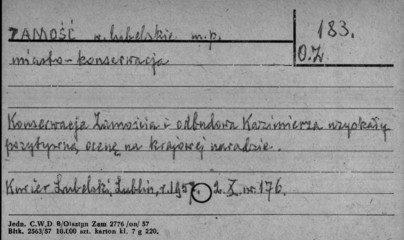 ZAMOŚĆ w. lubelskie m.p.
183.
O.Z.
miasto - konserwacja
Konserwacja Zamościa i odbudowa Kazimierza uzyskały
pozytywną ocenę na krajowej naradzie.
Kurier Lubelski, Lublin, r. 1957. 2. X. nr. 176.
Jedn. C.W.D B/Olsztyn Zam 2776 /on/ 57
Bltk. 2563/57 10.000 szt. karton kl. 7 g 220.